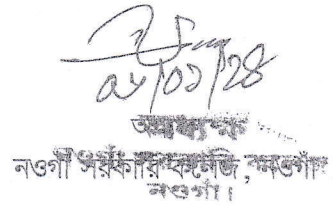 ০৮/০১/২৪
অধ্যক্ষ
নওগাঁ সরকারি কলেজ, নওগাঁ
নওগাঁ।